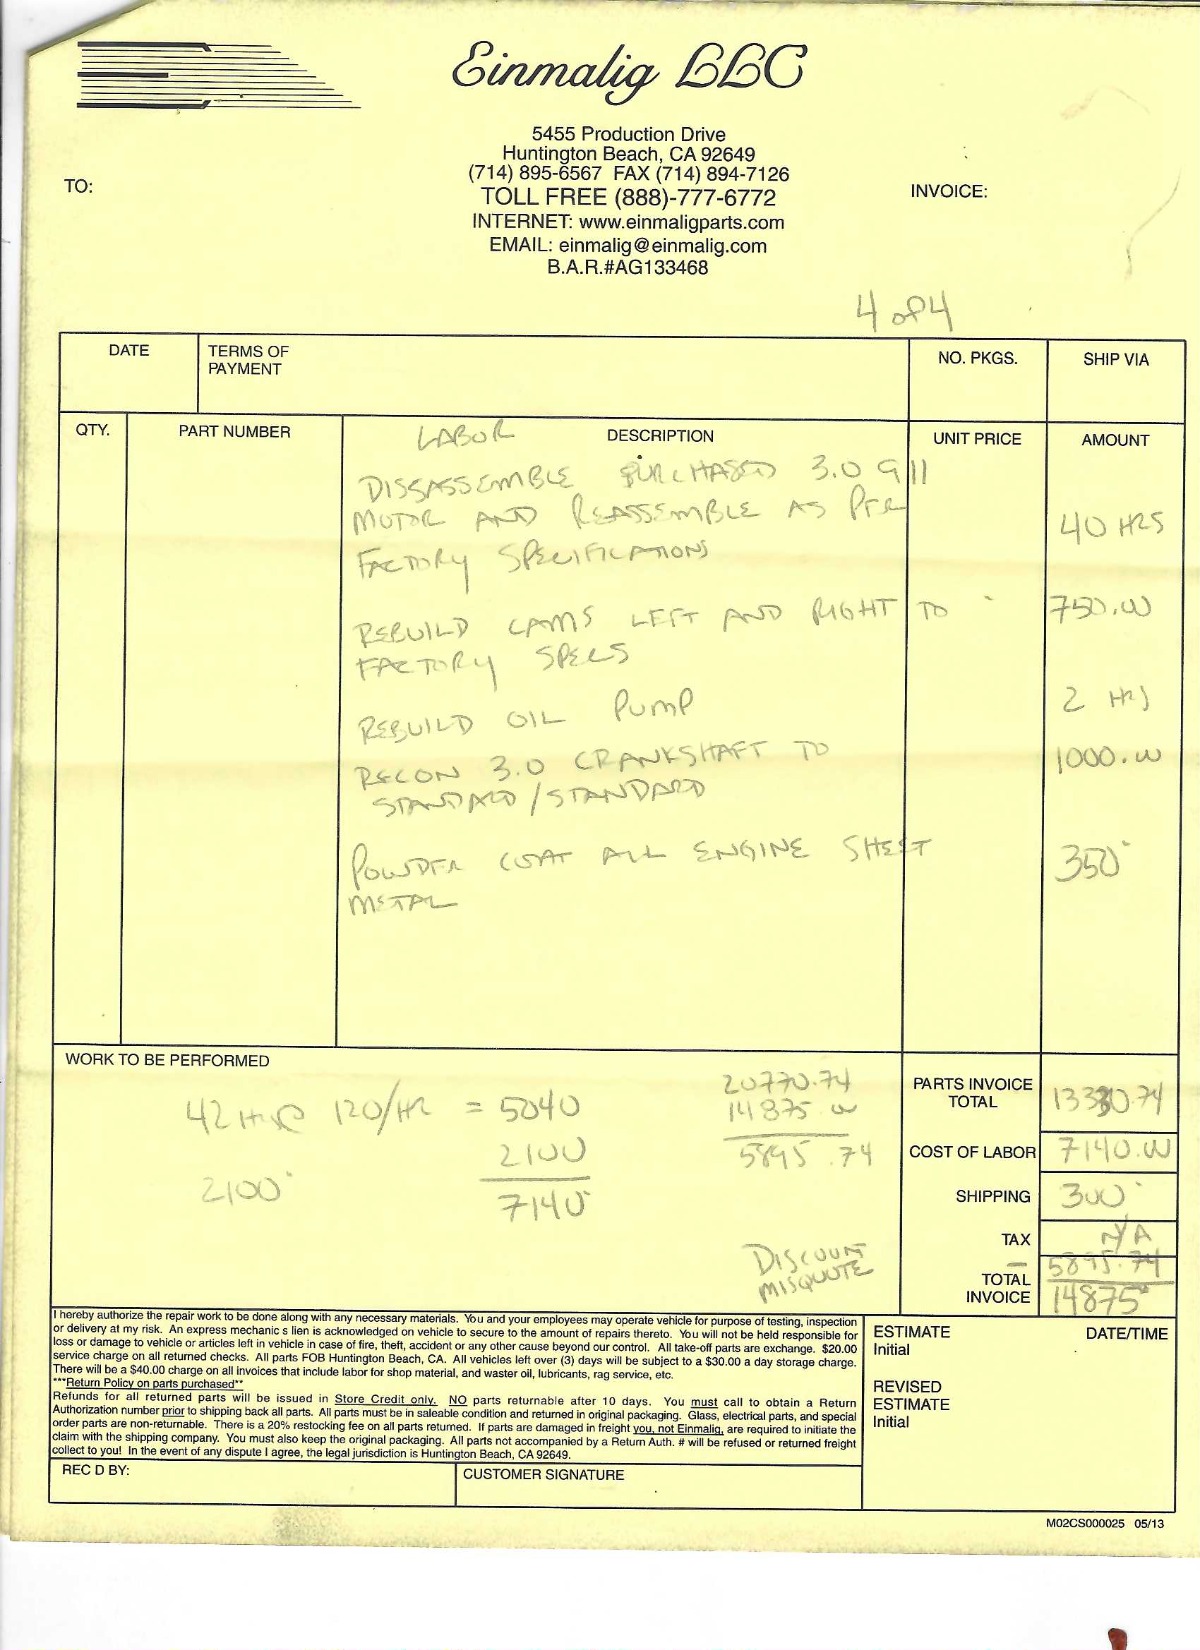 Einmalig LLC
5455 Production Drive
Huntington Beach, CA 92649
(714) 895-6567 FAX (714) 894-7126
TOLL FREE (888)-777-6772
INTERNET: www.einmaligparts.com
EMAIL: einmalig@einmalig.com
B.A.R.#AG133468
TO:
INVOICE:
4 of 4
DATE
TERMS OF
PAYMENT
NO. PKGS.
SHIP VIA
QTY.
PART NUMBER
DESCRIPTION
UNIT PRICE
AMOUNT
LABOR
DISSASSEMBLE PURCHASED 3.0 911
MOTOR AND REASSEMBLE AS PER
FACTORY SPECIFICATIONS
40 HRS
REBUILD CAMS LEFT AND RIGHT TO
FACTORY SPECS
750.00
REBUILD OIL PUMP
2 HRS
RECON 3.0 CRANKSHAFT TO
STANDARD/STANDARD
1000.00
POWDER COAT ALL ENGINE SHEET
METAL
350
WORK TO BE PERFORMED
42 120/HR = 5040
2100
2100
7140
20770.74
14875.00
5895.74
DISCOUNT
MISQUOTE
PARTS INVOICE
TOTAL
13330.74
COST OF LABOR
7140.00
SHIPPING
300
TAX
N/A
— 5895.74
TOTAL
INVOICE
14875
I hereby authorize the repair work to be done along with any necessary materials. You and your employees may operate vehicle for purpose of testing, inspection
or delivery at my risk. An express mechanic s lien is acknowledged on vehicle to secure to the amount of repairs thereto. You will not be held responsible for
loss or damage to vehicle or articles left in vehicle in case of fire, theft, accident or any other cause beyond our control. All take-off parts are exchange. $20.00
service charge on all returned checks. All parts FOB Huntington Beach, CA. All vehicles left over (3) days will be subject to a $30.00 a day storage charge.
There will be a $40.00 charge on all invoices that include labor for shop material, and waster oil, lubricants, rag service, etc.
***Return Policy on parts purchased**
Refunds for all returned parts will be issued in Store Credit only. NO parts returnable after 10 days. You must call to obtain a Return
Authorization number prior to shipping back all parts. All parts must be in saleable condition and returned in original packaging. Glass, electrical parts, and special
order parts are non-returnable. There is a 20% restocking fee on all parts returned. If parts are damaged in freight you, not Einmalig, are required to initiate the
claim with the shipping company. You must also keep the original packaging. All parts not accompanied by a Return Auth. # will be refused or returned freight
collect to you! In the event of any dispute I agree, the legal jurisdiction is Huntington Beach, CA 92649.
ESTIMATE
Initial
DATE/TIME
REVISED
ESTIMATE
Initial
REC D BY:
CUSTOMER SIGNATURE
M02CS000025 05/13